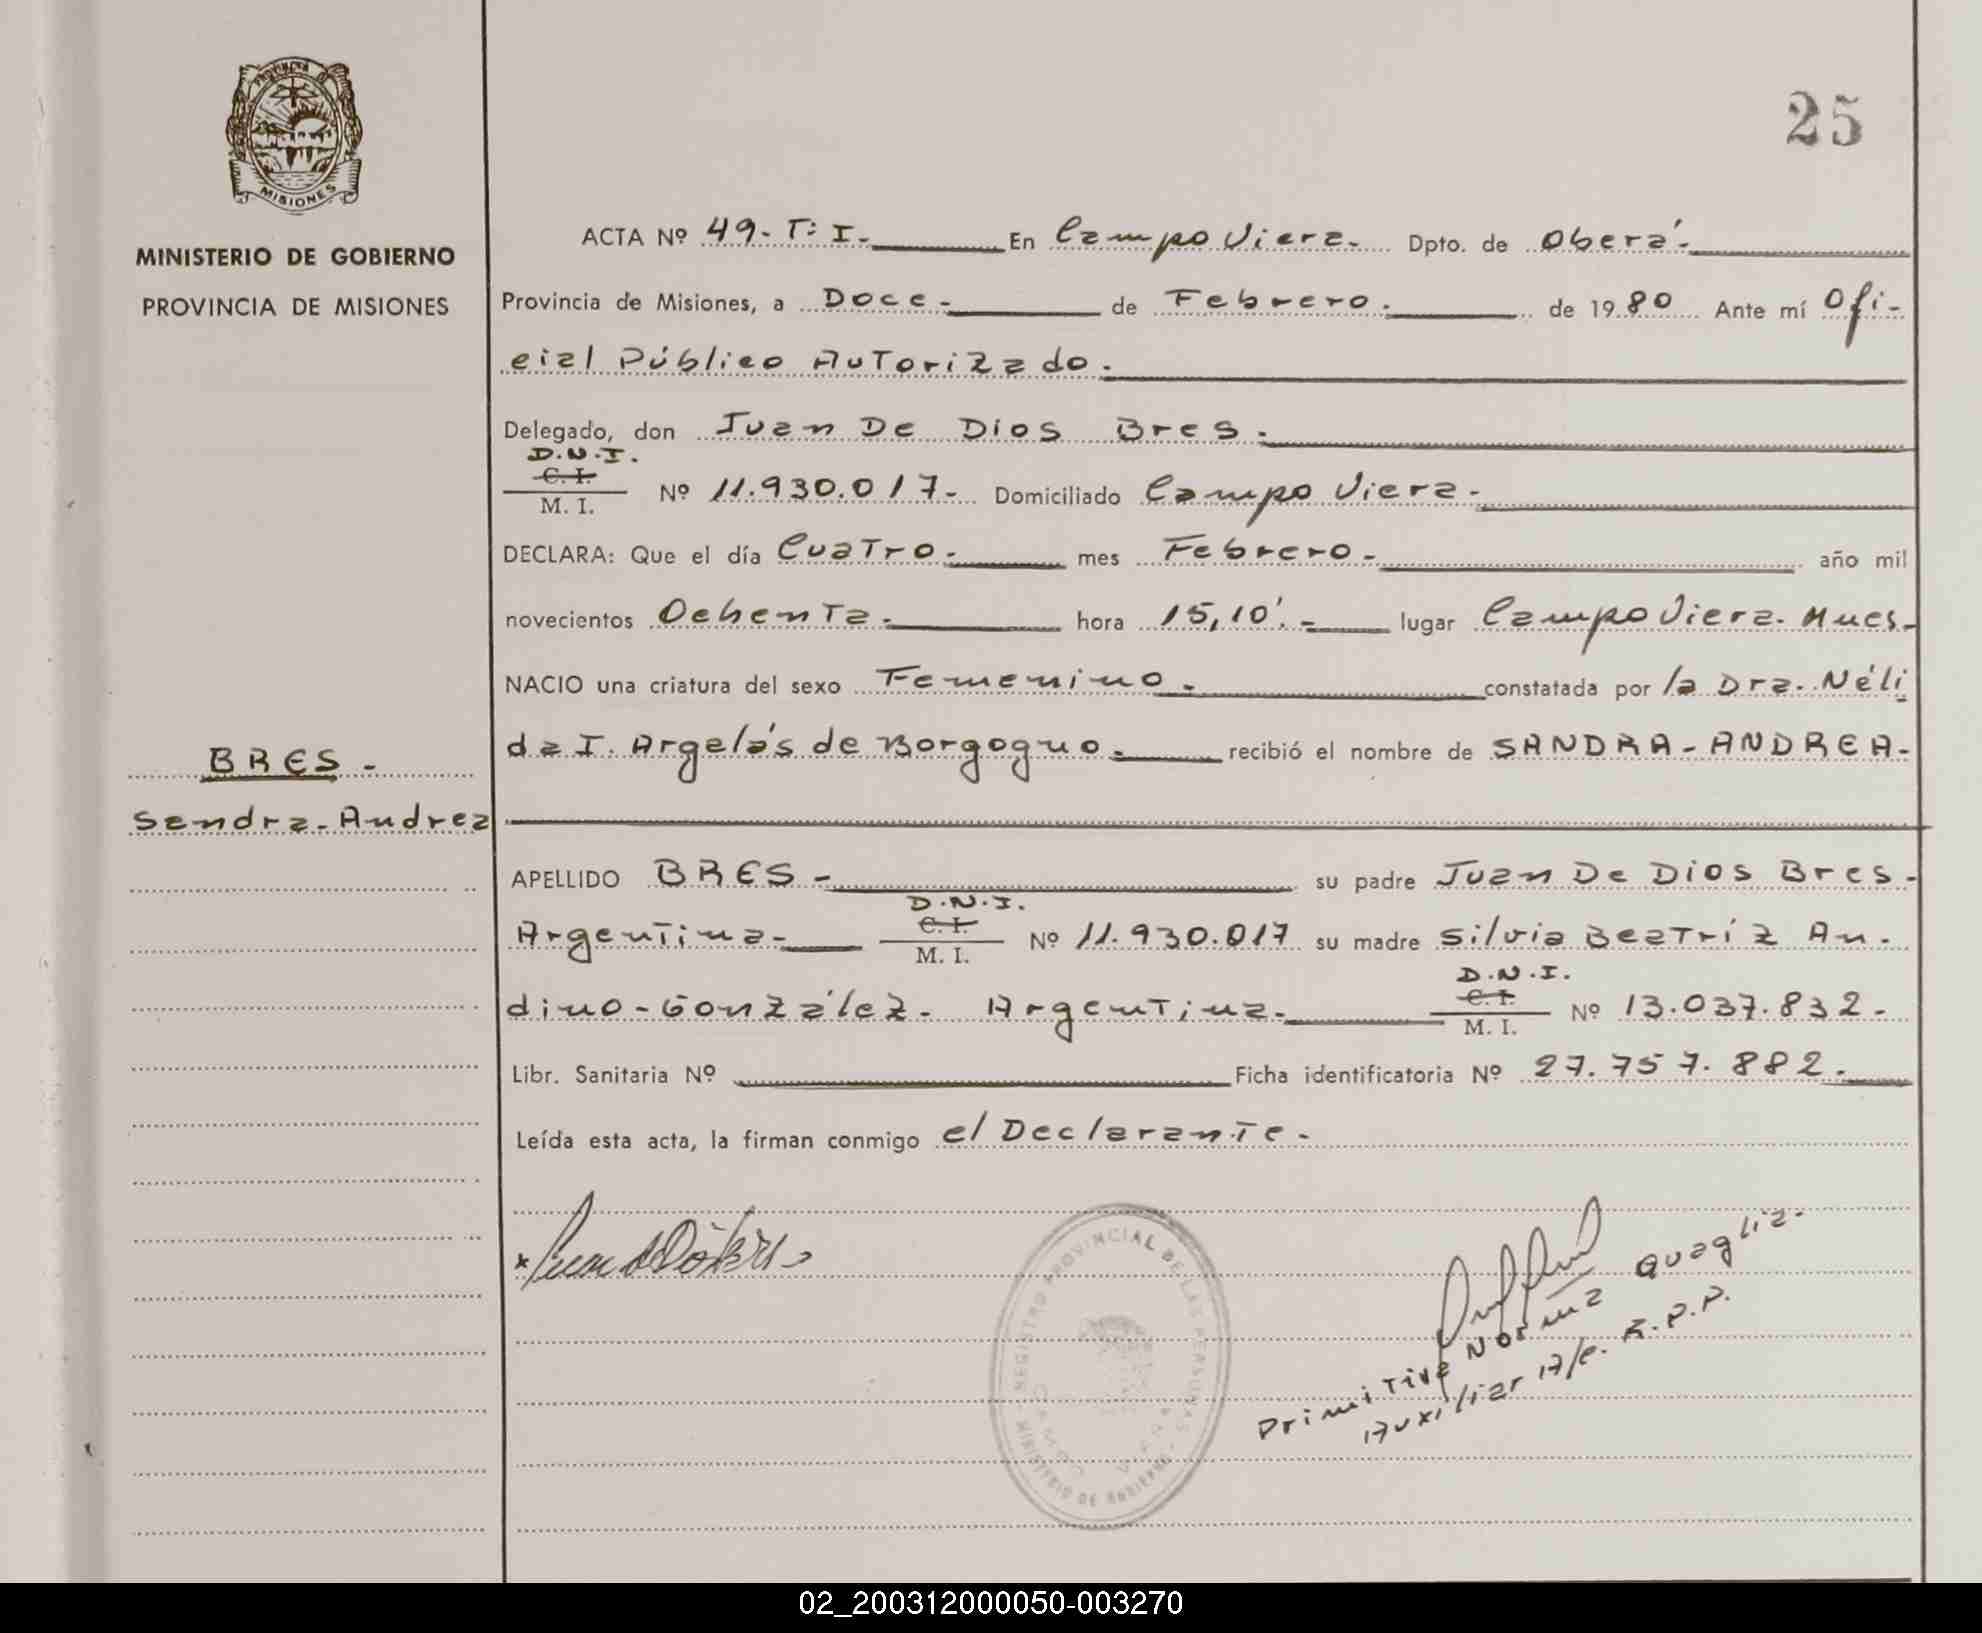 25
Provincia de
MISIONES
MINISTERIO DE GOBIERNO
PROVINCIA DE MISIONES
ACTA Nº 49.- T: I.- En Campo Viera.- Dpto. de Oberá.-
Provincia de Misiones, a Doce.- de Febrero.- de 1980 Ante mí Ofi-
cial Público Autorizado.-
Delegado, don Juan De Dios Bres.-
D.N.I.
C. I.
M. I. Nº 11.930.017.- Domiciliado Campo Viera.-
DECLARA: Que el día Cuatro.- mes Febrero.- año mil
novecientos Ochenta.- hora 15,10'.- lugar Campo Viera. Mues.-
NACIO una criatura del sexo Femenino.- constatada por la Dra. Néli
da I. Argelás de Borgogno.- recibió el nombre de SANDRA-ANDREA-
BRES-
Sandra-Andrea
APELLIDO BRES- su padre Juan De Dios Bres-
D.N.I.
Argentina- C. I. Nº 11.930.017 su madre Silvia Beatríz An-
M. I.
D.N.I.
dino-González.- Argentina.- C. I. Nº 13.037.832.-
M. I.
Libr. Sanitaria Nº Ficha identificatoria Nº 27.757.882.-
Leída esta acta, la firman conmigo el Declarante.-
REGISTRO PROVINCIAL DE LAS PERSONAS
MINISTERIO DE GOBIERNO
CAMPO VIERA
Primitiva Norma Quaglia-
Auxiliar A/c. R.P.P.
02_200312000050-003270